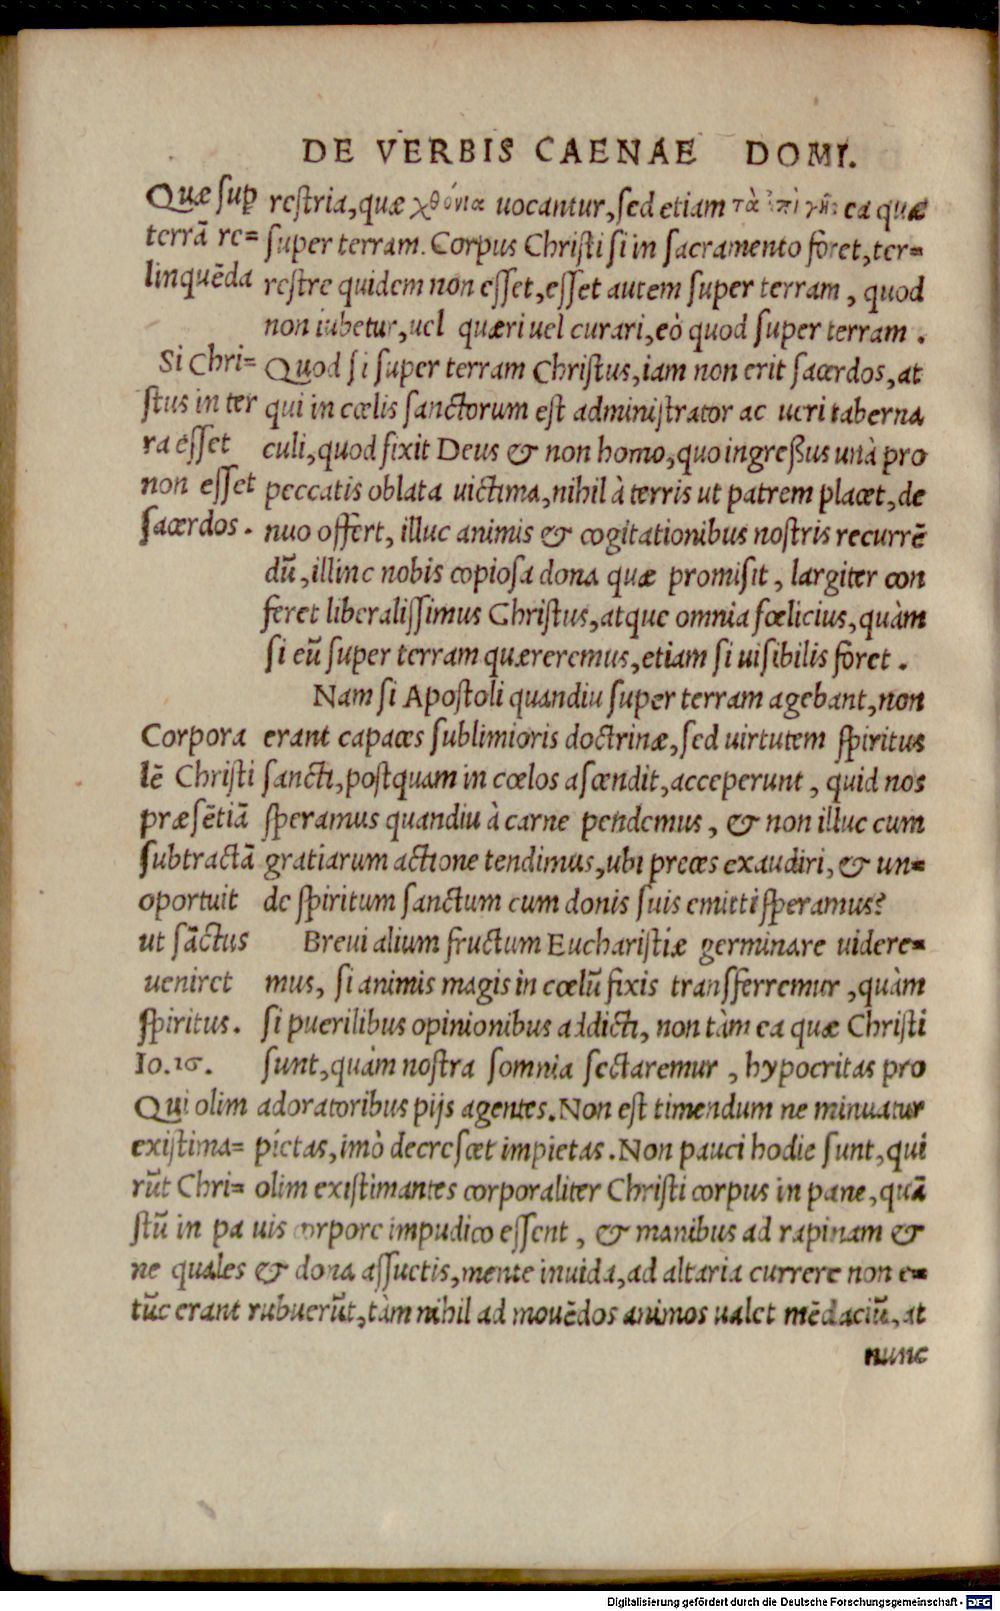 DE VERBIS CAENAE DOMI.
Quæ suꝑ
terrã re=
linquẽda
restria, quæ χθόνια uocantur, sed etiam τὰ ἐπὶ γῆς ea quæ
super terram. Corpus Christi si in sacramento foret, ter=
restre quidem non esset, esset autem super terram, quod
non iubetur, uel quæri uel curari, eò quod super terram.
Si Chri=
stus in ter
ra esset
non esset
sacerdos.
Quod si super terram Christus, iam non erit sacerdos, at
qui in cœlis sanctorum est administrator ac ueri taberna
culi, quod fixit Deus & non homo, quo ingreßus unà pro
peccatis oblata uictima, nihil à terris ut patrem placet, de
nuo offert, illuc animis & cogitationibus nostris recurrẽ
dũ, illinc nobis copiosa dona quæ promisit, largiter con
feret liberalissimus Christus, atque omnia fœlicius, quàm
si eũ super terram quæreremus, etiam si uisibilis foret.
Nam si Apostoli quandiu super terram agebant, non
Corpora
lẽ Christi
præsẽtiã
subtractã
oportuit
ut sãctus
ueniret
spiritus.
Io.16.
erant capaces sublimioris doctrinæ, sed uirtutem spiritus
sancti, postquam in cœlos ascendit, acceperunt, quid nos
speramus quandiu à carne pendemus, & non illuc cum
gratiarum actione tendimus, ubi preces exaudiri, & un=
de spiritum sanctum cum donis suis emitti speramus?
Breui alium fructum Eucharistiæ germinare uidere=
mus, si animis magis in cœlũ fixis transferremur, quàm
si puerilibus opinionibus addicti, non tàm ea quæ Christi
sunt, quàm nostra somnia sectaremur, hypocritas pro
Qui olim
existima=
rũt Chri=
stũ in pa
ne quales
tũc erant
adoratoribus pijs agentes. Non est timendum ne minuatur
pietas, imò decrescet impietas. Non pauci hodie sunt, qui
olim existimantes corporaliter Christi corpus in pane, quã
uis corpore impudico essent, & manibus ad rapinam &
& dona assuetis, mente inuida, ad altaria currere non e=
rubuerũt, tàm nihil ad mouẽdos animos ualet mẽdaciũ, at
nunc
Digitalisierung gefördert durch die Deutsche Forschungsgemeinschaft - DFG